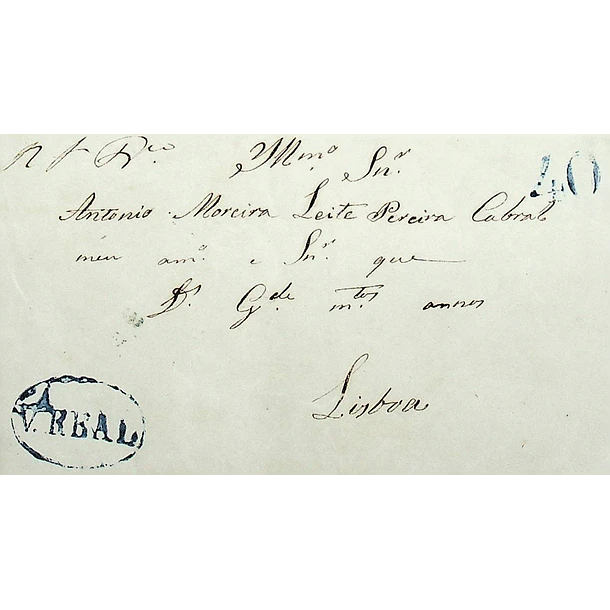 Mmº Snr.
40
Antonio Moreira Leite Pereira Cabral
meu amº e Snr. que
Ds. Gde. mtos. annos
Lisboa
V. REAL